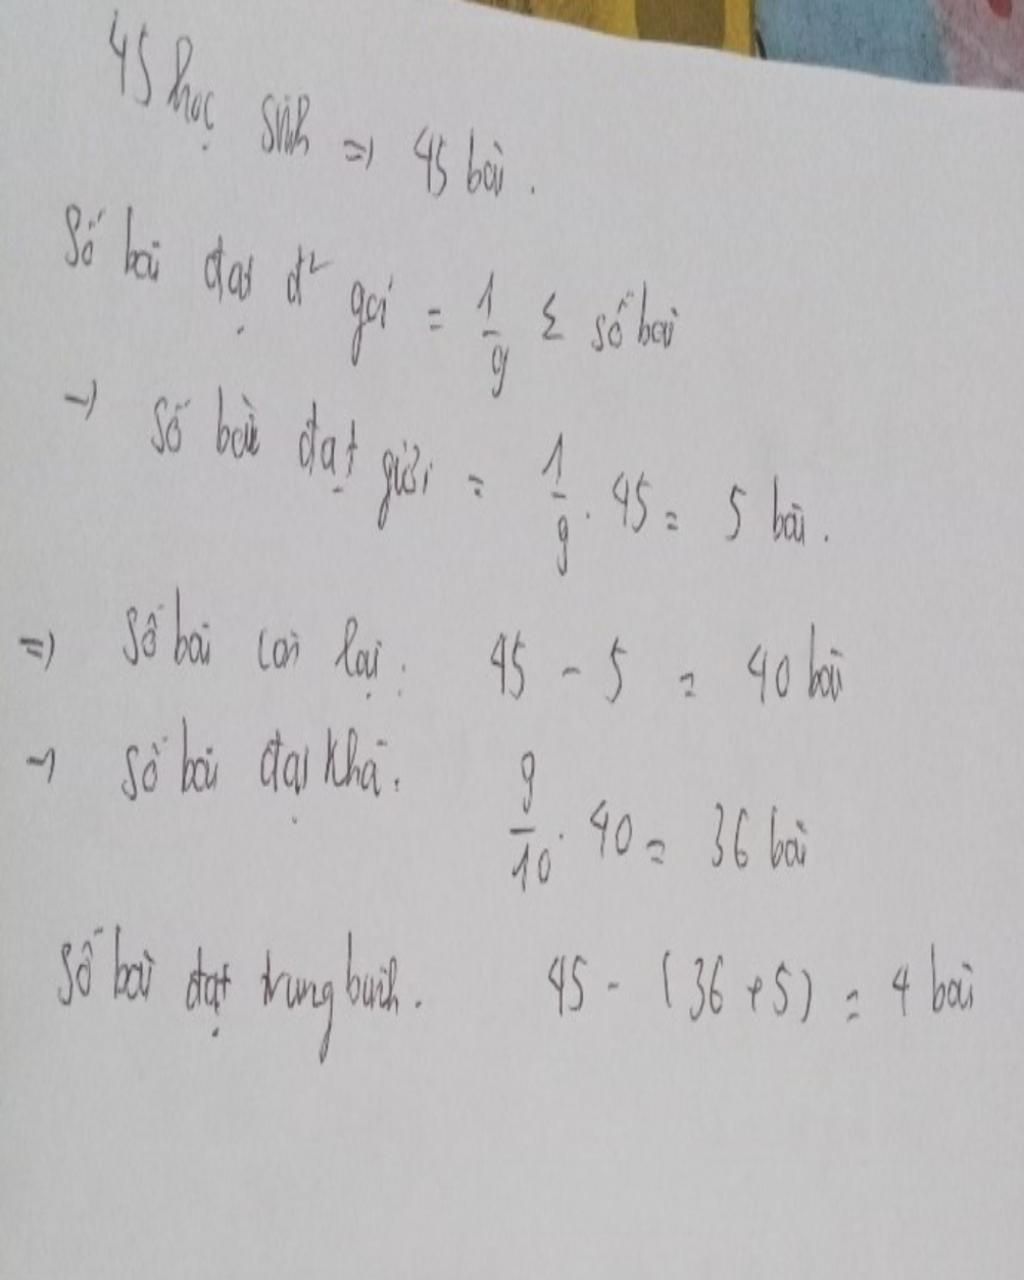 45 học sinh => 45 bài.
Số bài đạt đ² giỏi = 1/9 Σ số bài
→ Số bài đạt giỏi = 1/9 . 45 = 5 bài.
=> Số bài còn lại: 45 - 5 = 40 bài
→ Số bài đạt khá. 9/10 . 40 = 36 bài
Số bài đạt trung bình. 45 - (36 + 5) = 4 bài